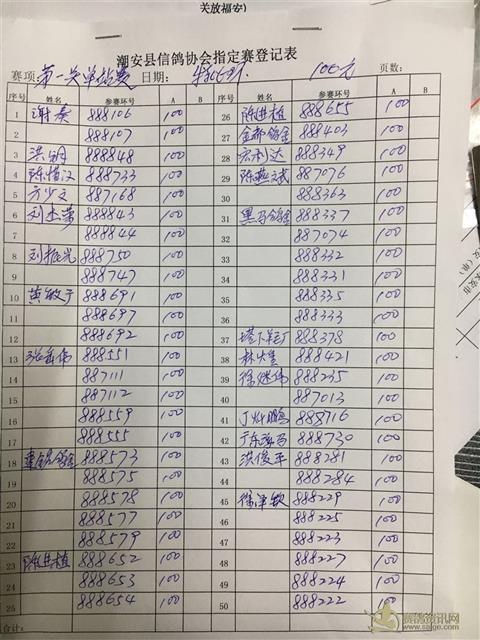 关放福安)
潮安县信鸽协会指定赛登记表
赛项:第一关单站赛 日期: 100元 页数:
序号 姓名 参赛环号 A B 序号 姓名 参赛环号 A B
1 谢奏 888106 100 26 陈进植 888655 100
2 888107 100 27 金都鸽舍 888403 100
3 洪钢 888848 100 28 宏利达 888349 100
4 888733 100 29 陈燕斌 887076 100
5 方少文 887168 100 30 888363 100
6 888843 100 31 黑马鸽舍 888337 100
7 888844 100 32 887074 100
8 刘振光 888750 100 33 888332 100
9 888747 100 34 888331 100
10 黄敏于 888691 100 35 888335 100
11 888697 100 36 888333 100
12 888692 100 37 888378 100
13 888551 100 38 888421 100
14 887111 100 39 徐继伟 888235 100
15 887112 100 40 887013 100
16 888559 100 41 丁灿鹏 888716 100
17 888555 100 42 888730 100
18 888573 100 43 洪俊平 888281 100
19 888575 100 44 888284 100
20 888578 100 45 888229 100
21 888577 100 46 888225 100
22 888579 100 47 888223 100
23 陈进植 888652 100 48 888227 100
24 888653 100 49 888224 100
25 888654 100 50 888222 100
合计:
赛鸽资讯网
www.saige.com